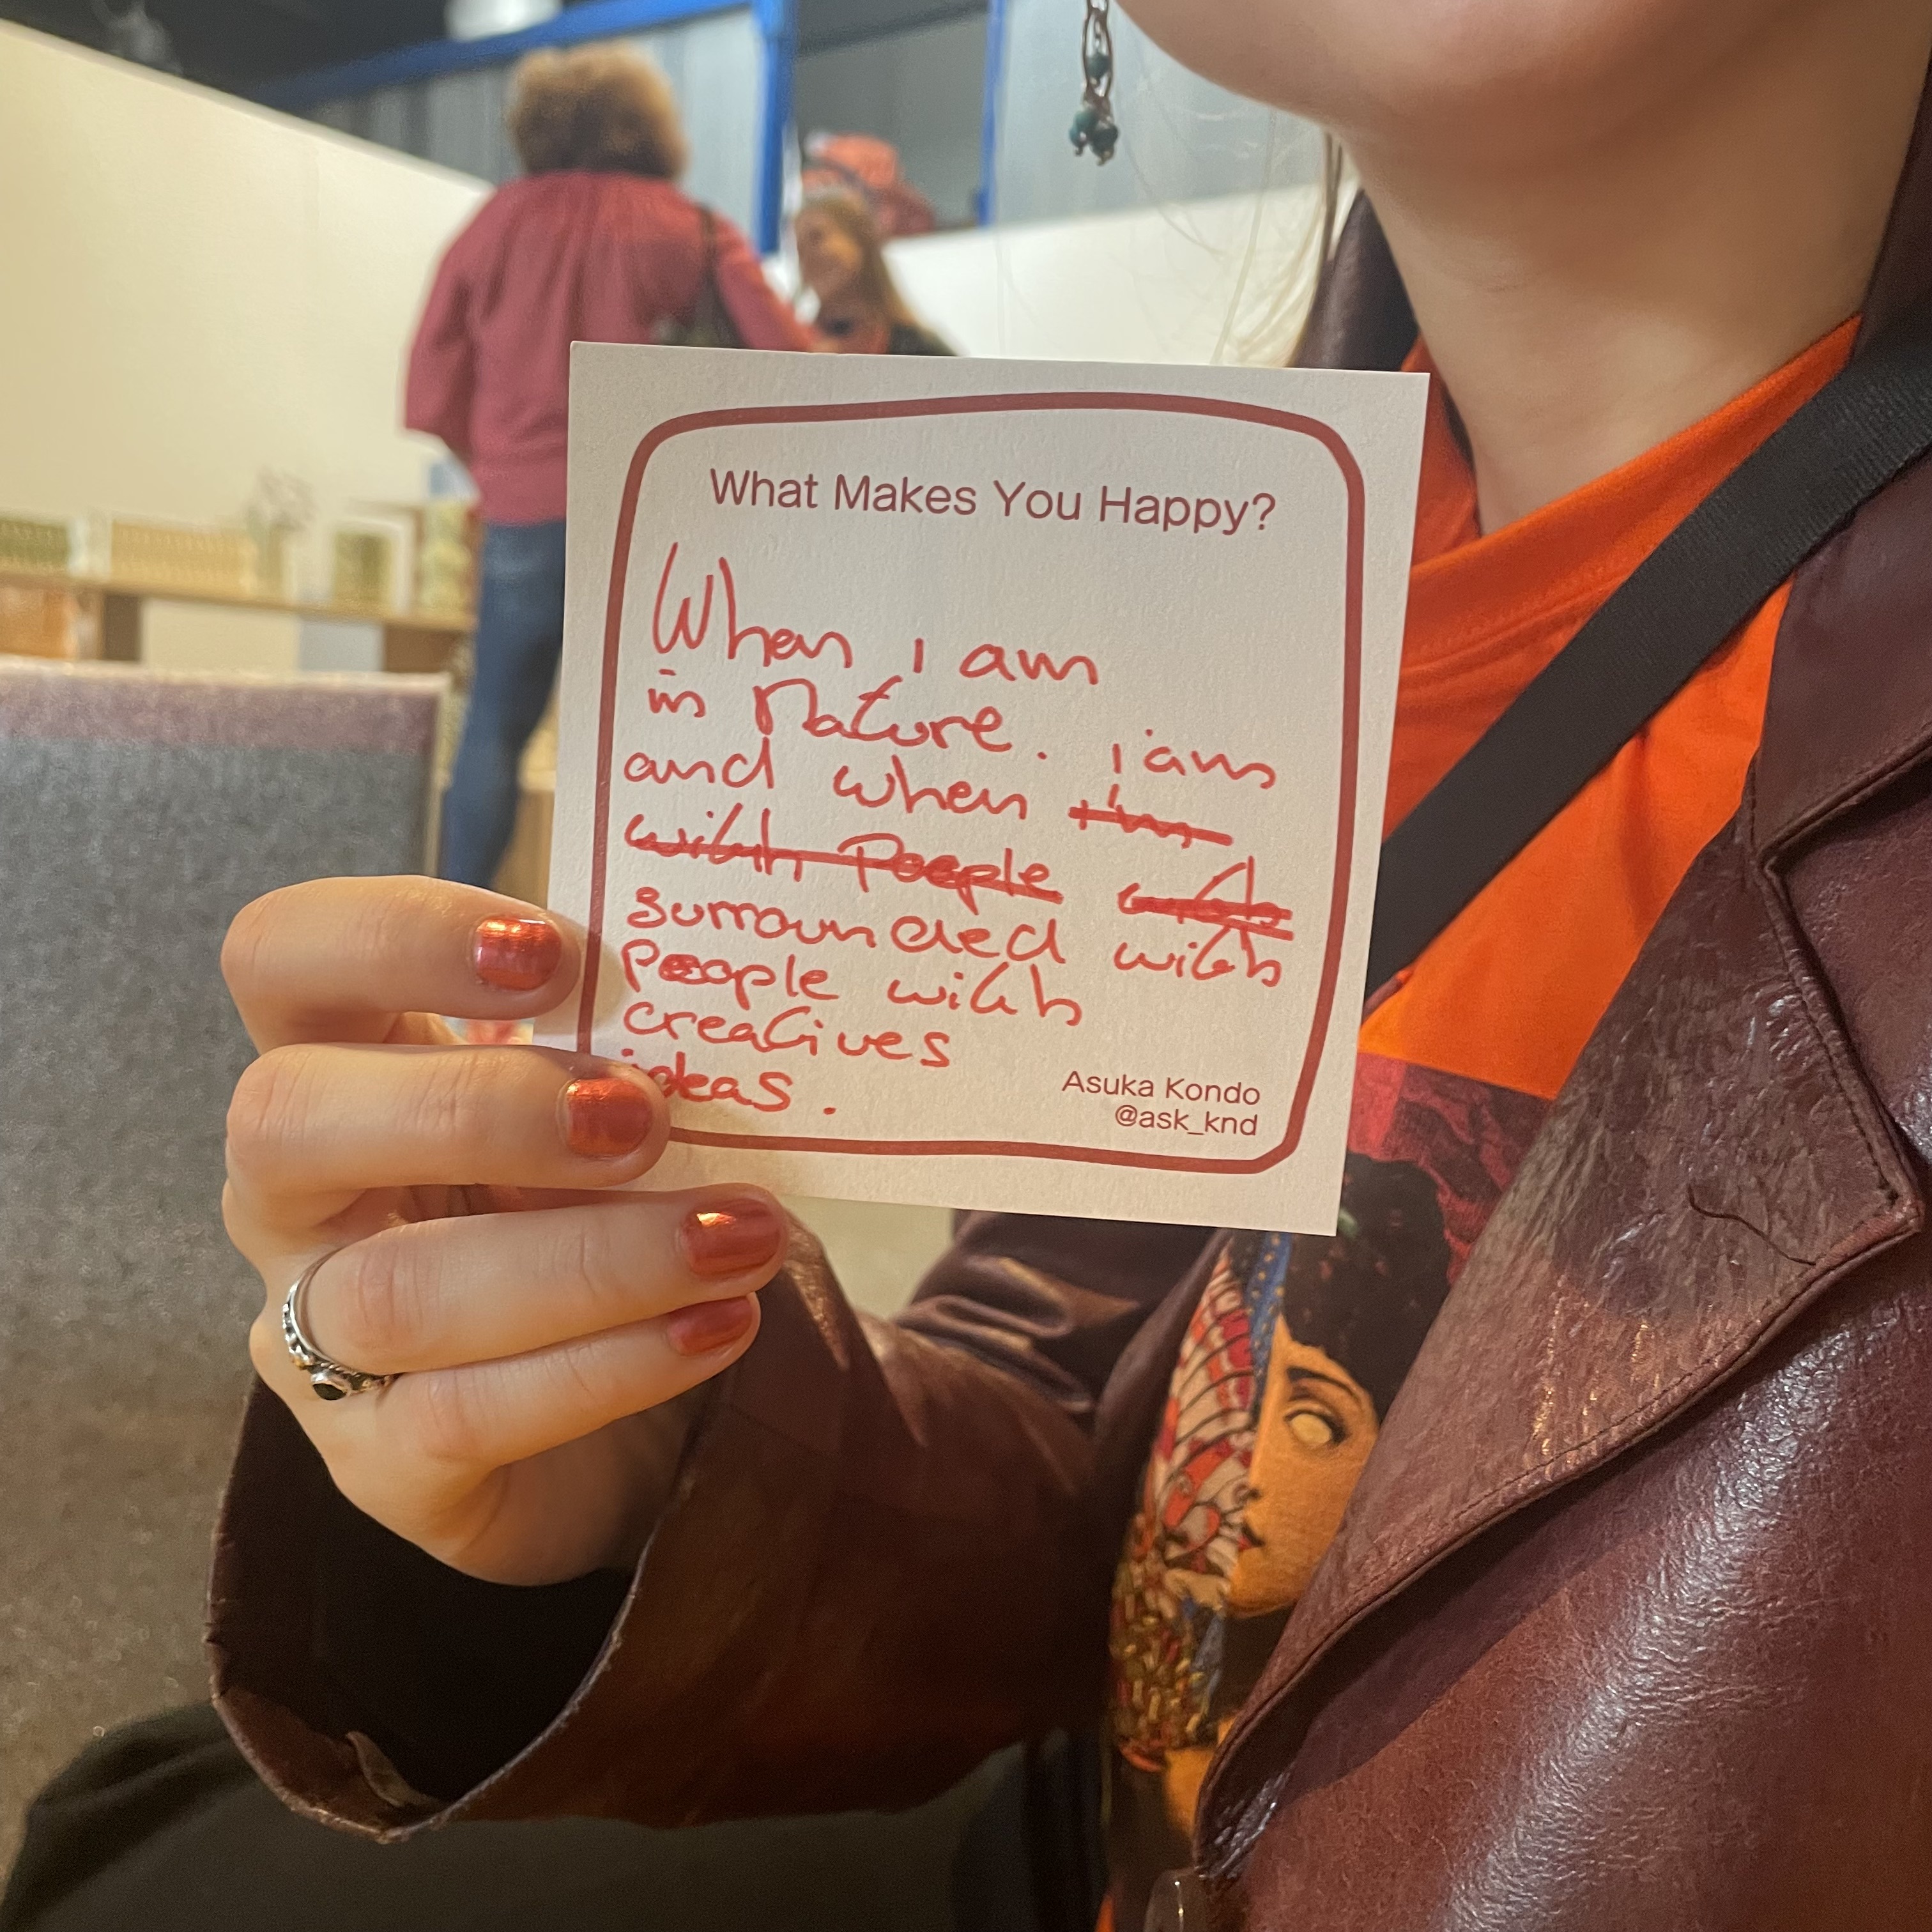 What Makes You Happy?
When i am
in Nature. i am
and when i'm
with People with
surrounded with
People with
creatives
ideas.
Asuka Kondo
@ask_knd